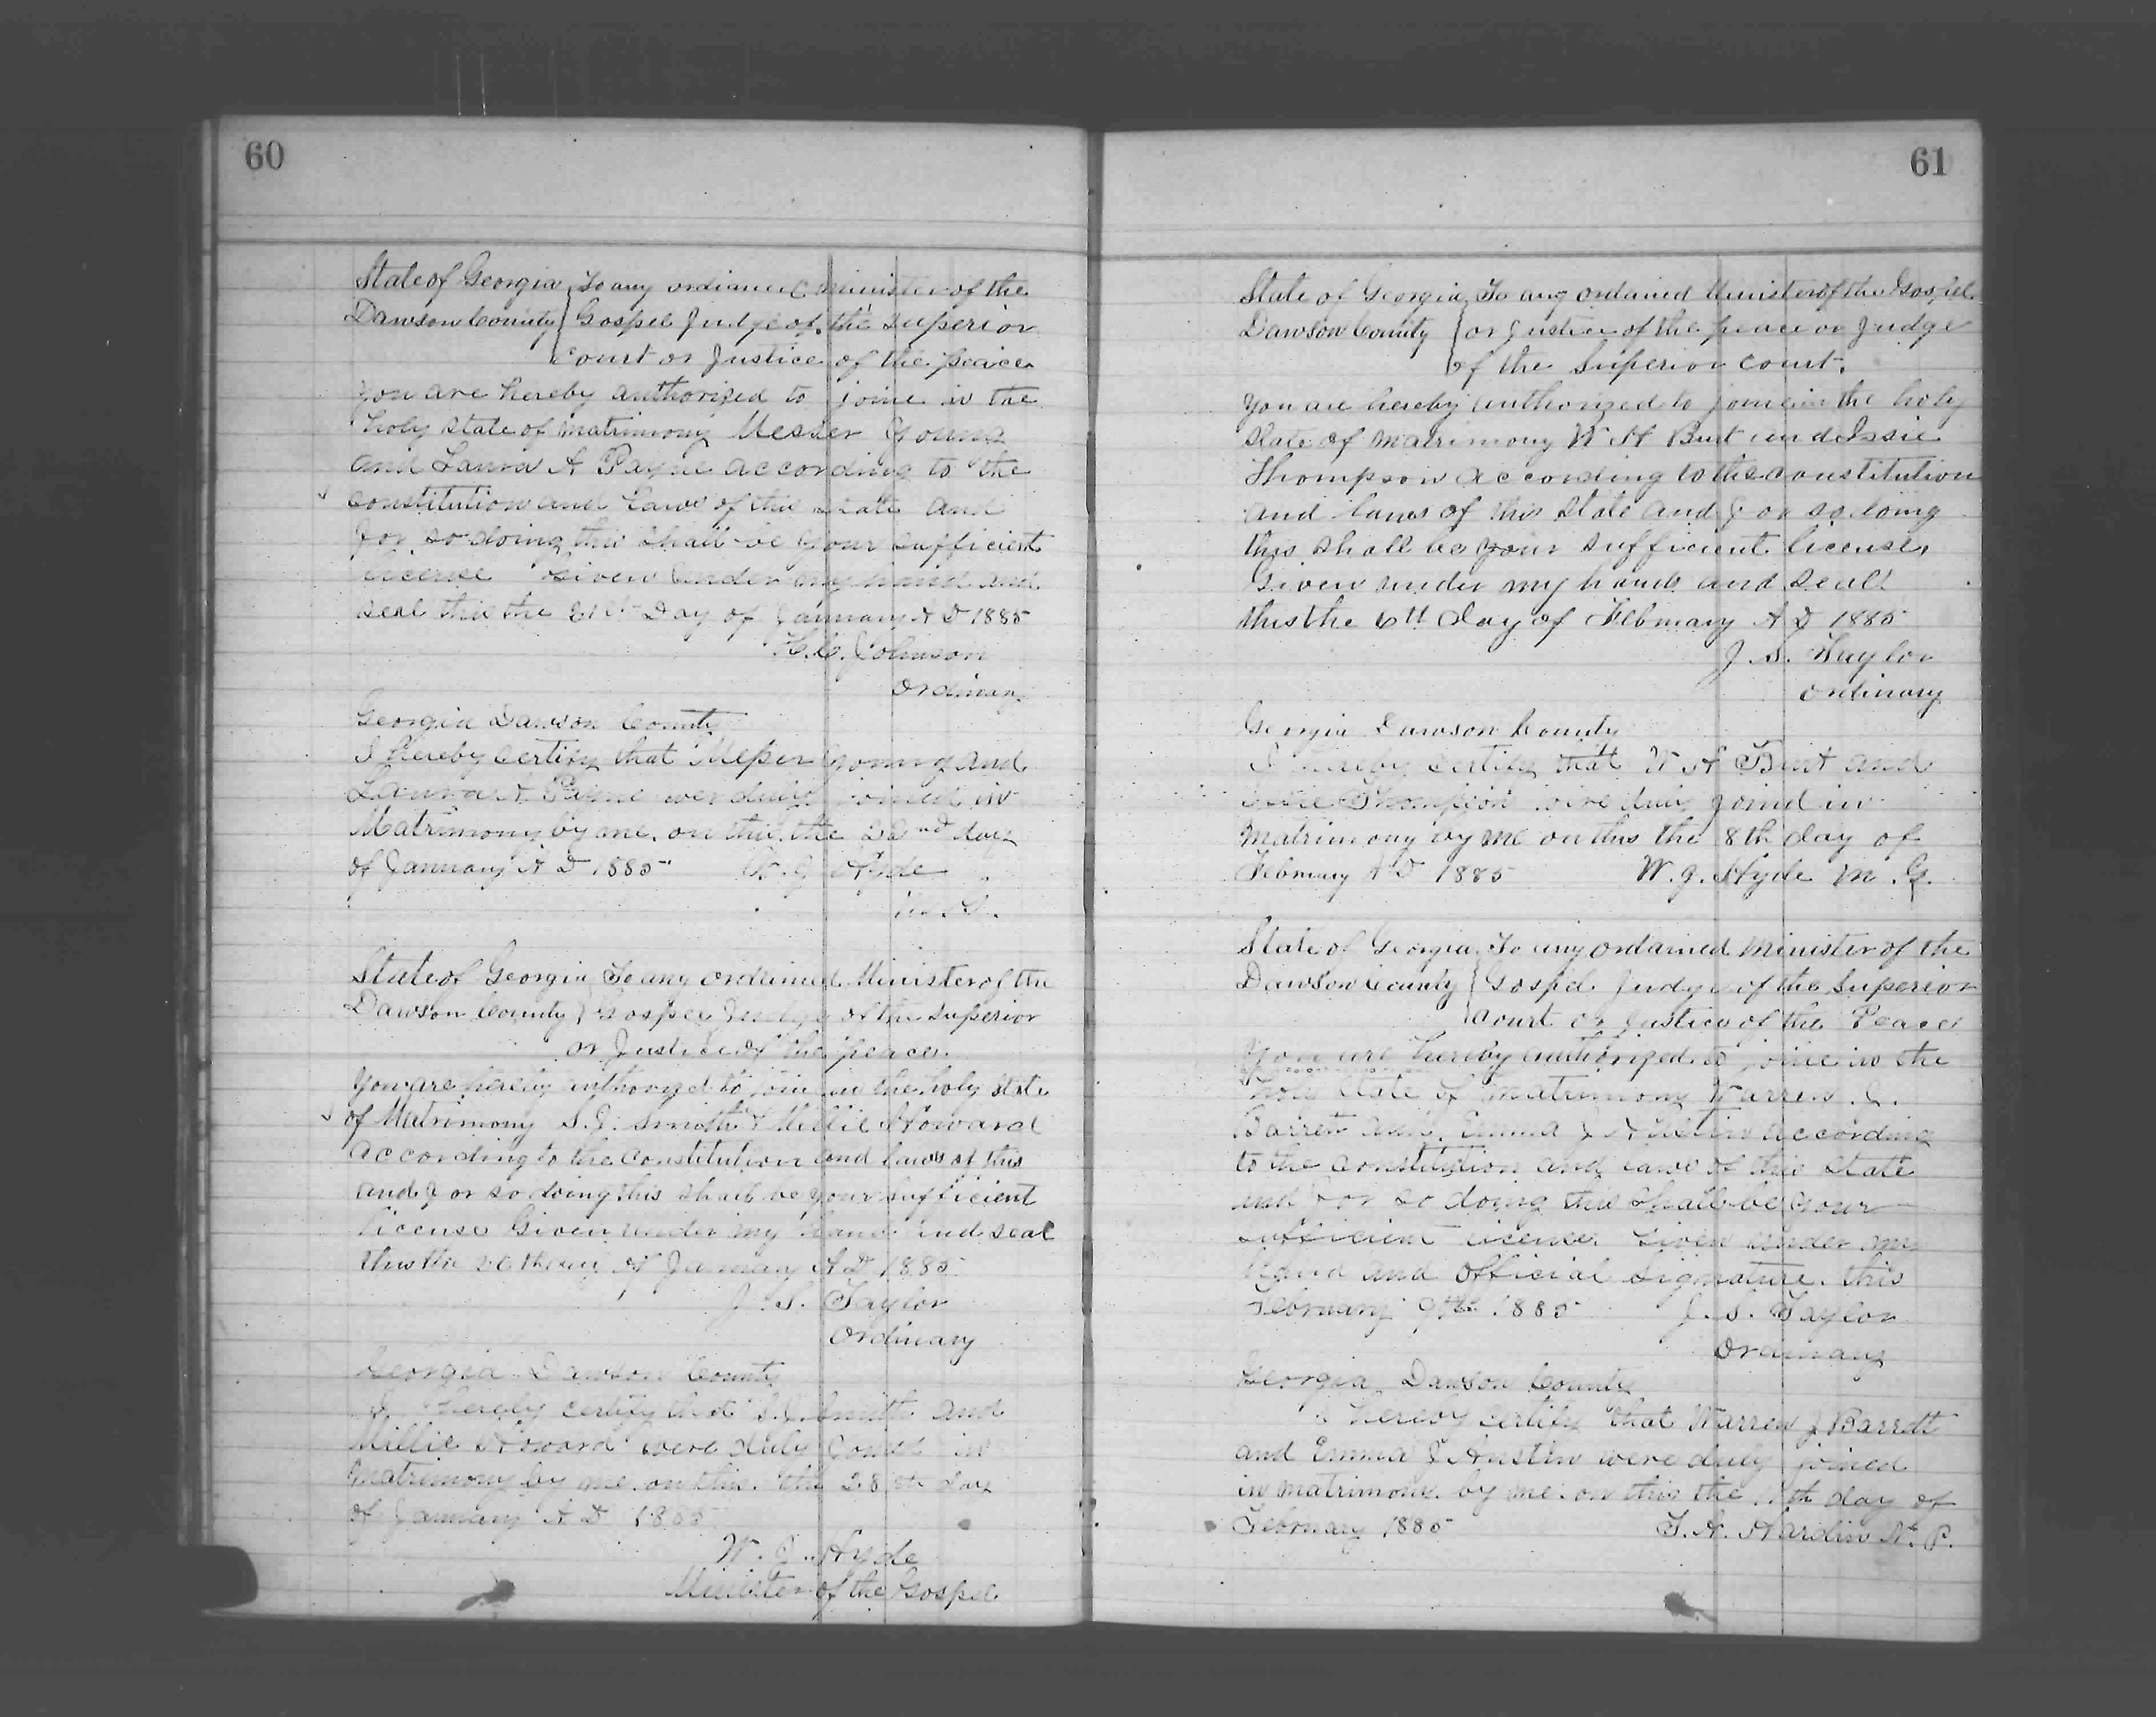 60
State of Georgia } To any ordianed minister of the
Dawson County } Gospel Judge of the Superior
Court or Justice of the peace
you are hereby authorized to joine in the
holy state of matrimony Messer Young
and Laura A Payne according to the
constitution and laws of this state and
for so doing this shall be your sufficient
license Given under my hand and
seal this the 21st Day of January A D 1885
H. C. Johnson
Ordinary
Georgia Dawson County
I hereby certify that Messer Young and
Laura A Payne wer duly joined in
Matrimony by me on this the 22nd day
of January A D 1885 W. J Hyde
M. G.
State of Georgia } To any ordained Minister of the
Dawson County } Gospel Judge of the Superior
or Justice of the peace
you are hereby authorized to join in the holy state
of Matrimony S. J. Smith & Millie Howard
according to the constitution and laws of this
and for so doing this shall be your sufficient
license Given under my hand and seal
this the day of January A D 1885
J. S. Taylor
Ordinary
Georgia Dawson County
I hereby certify that S. J. Smith and
Millie Howard were duly joined in
matrimony by me on this the 28th day
of January A D 1885
W. J. Hyde
Minister of the Gospel
61
State of Georgia } To any ordained Minister of the Gospel
Dawson County } or Justice of the peace or Judge
of the Superior court.
You are hereby authorized to joine in the holy
state of matrimony W H Burt and Issie
Thompson according to the constitution
and laws of this state and for so doing
this shall be your sufficient license,
Given under my hand and seal
this the 6th day of February A D 1885
J. S. Taylor
ordinary
Georgia Dawson County
I hereby certify that W H Burt and
Issie Thompson were duly joind in
matrimony by me on this the 8th day of
February A D 1885 W. J. Hyde M. G.
State of Georgia } To any ordained minister of the
Dawson County } Gospel Judge of the Superior
Court or Justice of the Peace
You are hereby authorized to joine in the
holy state of matrimony Warren J.
Barrett and Emma J Austin according
to the constitution and laws of this state
and for so doing this shall be your
sufficient license Given under my
Hand and official signature this
February 9th 1885 J. S. Taylor
Ordinary
Georgia Dawson County
I hereby certify that Warren J Barrett
and Emma J Austin were duly joined
in matrimony by me on this the day of
February 1885 T. H. Hardin N. P.